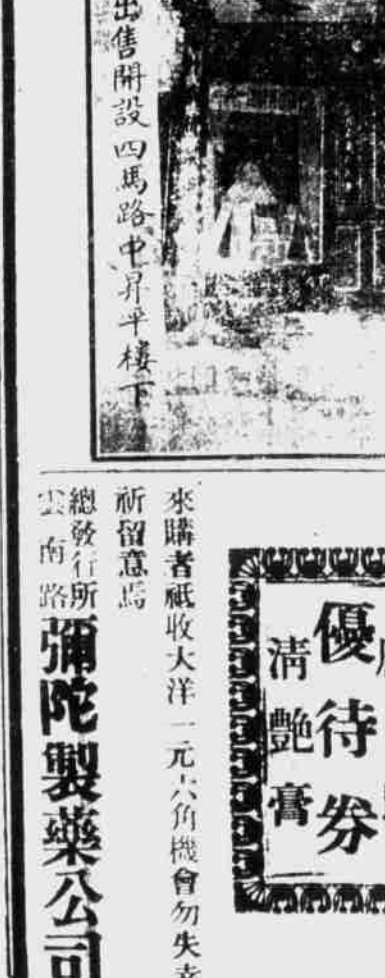 出售開設四馬路中昇平樓下
優待券
清艷膏
來購者祇收大洋一元六角機會勿失幸
祈留意焉
總發行所
雲南路
彌陀製藥公司